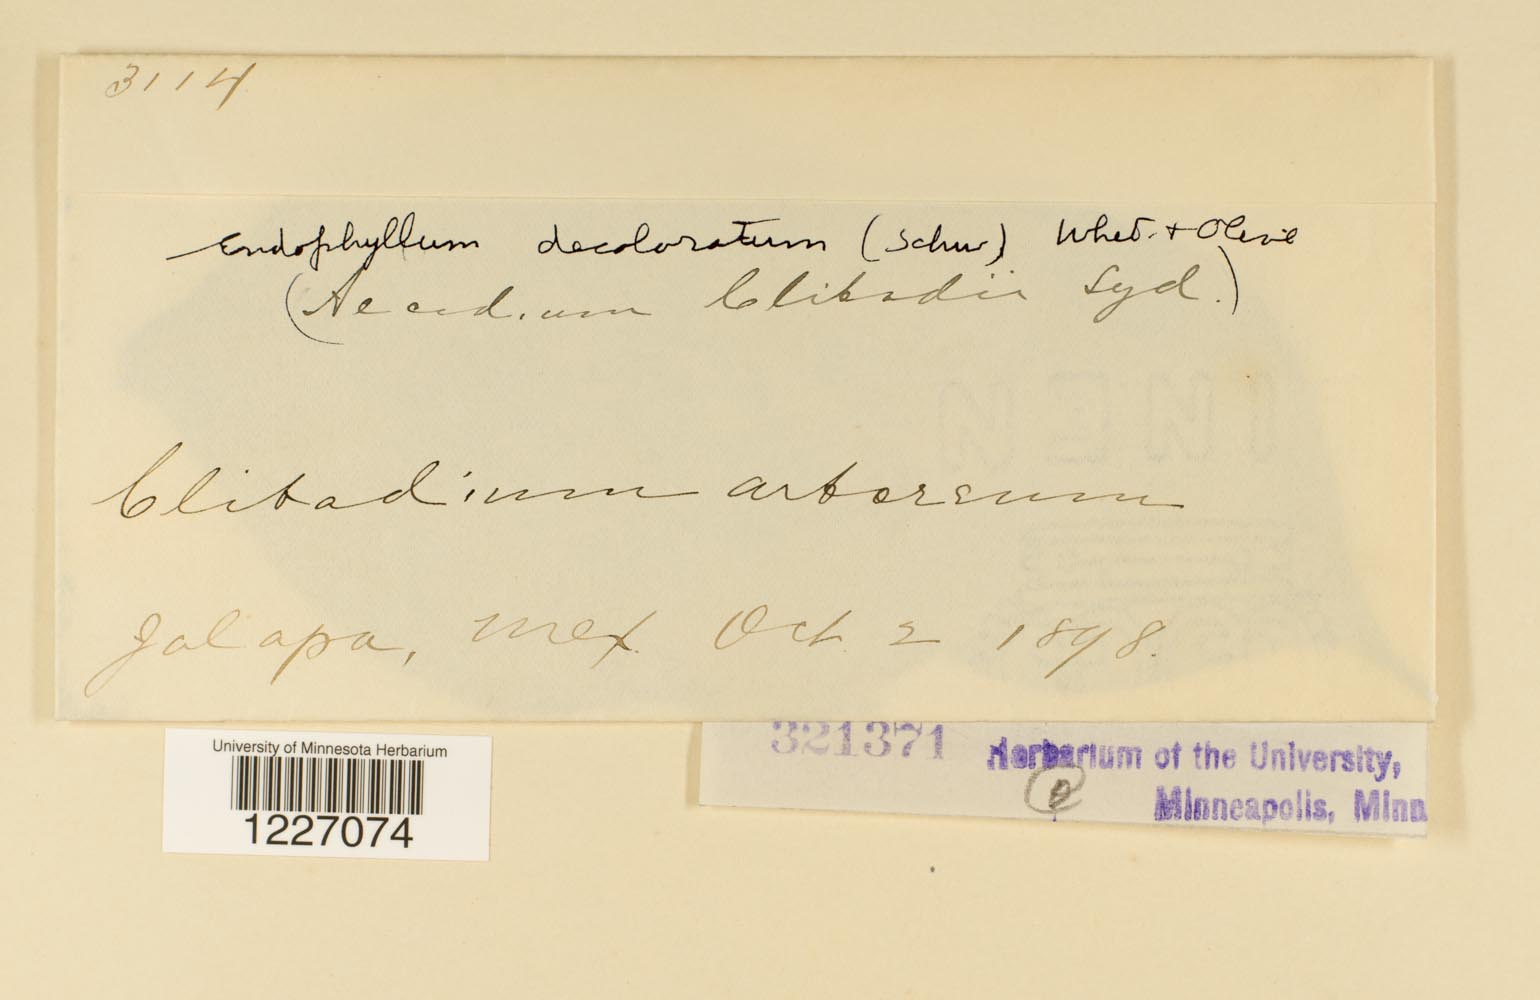 3114
Endophyllum decoloratum (Schw) Whet. + Olive
(Aecidium Clibadii Syd.)
Clibadium arboreum
Jalapa, Mex. Oct. 2 1898.
University of Minnesota Herbarium
1227074
321371
Herbarium of the University,
Minneapolis, Minn